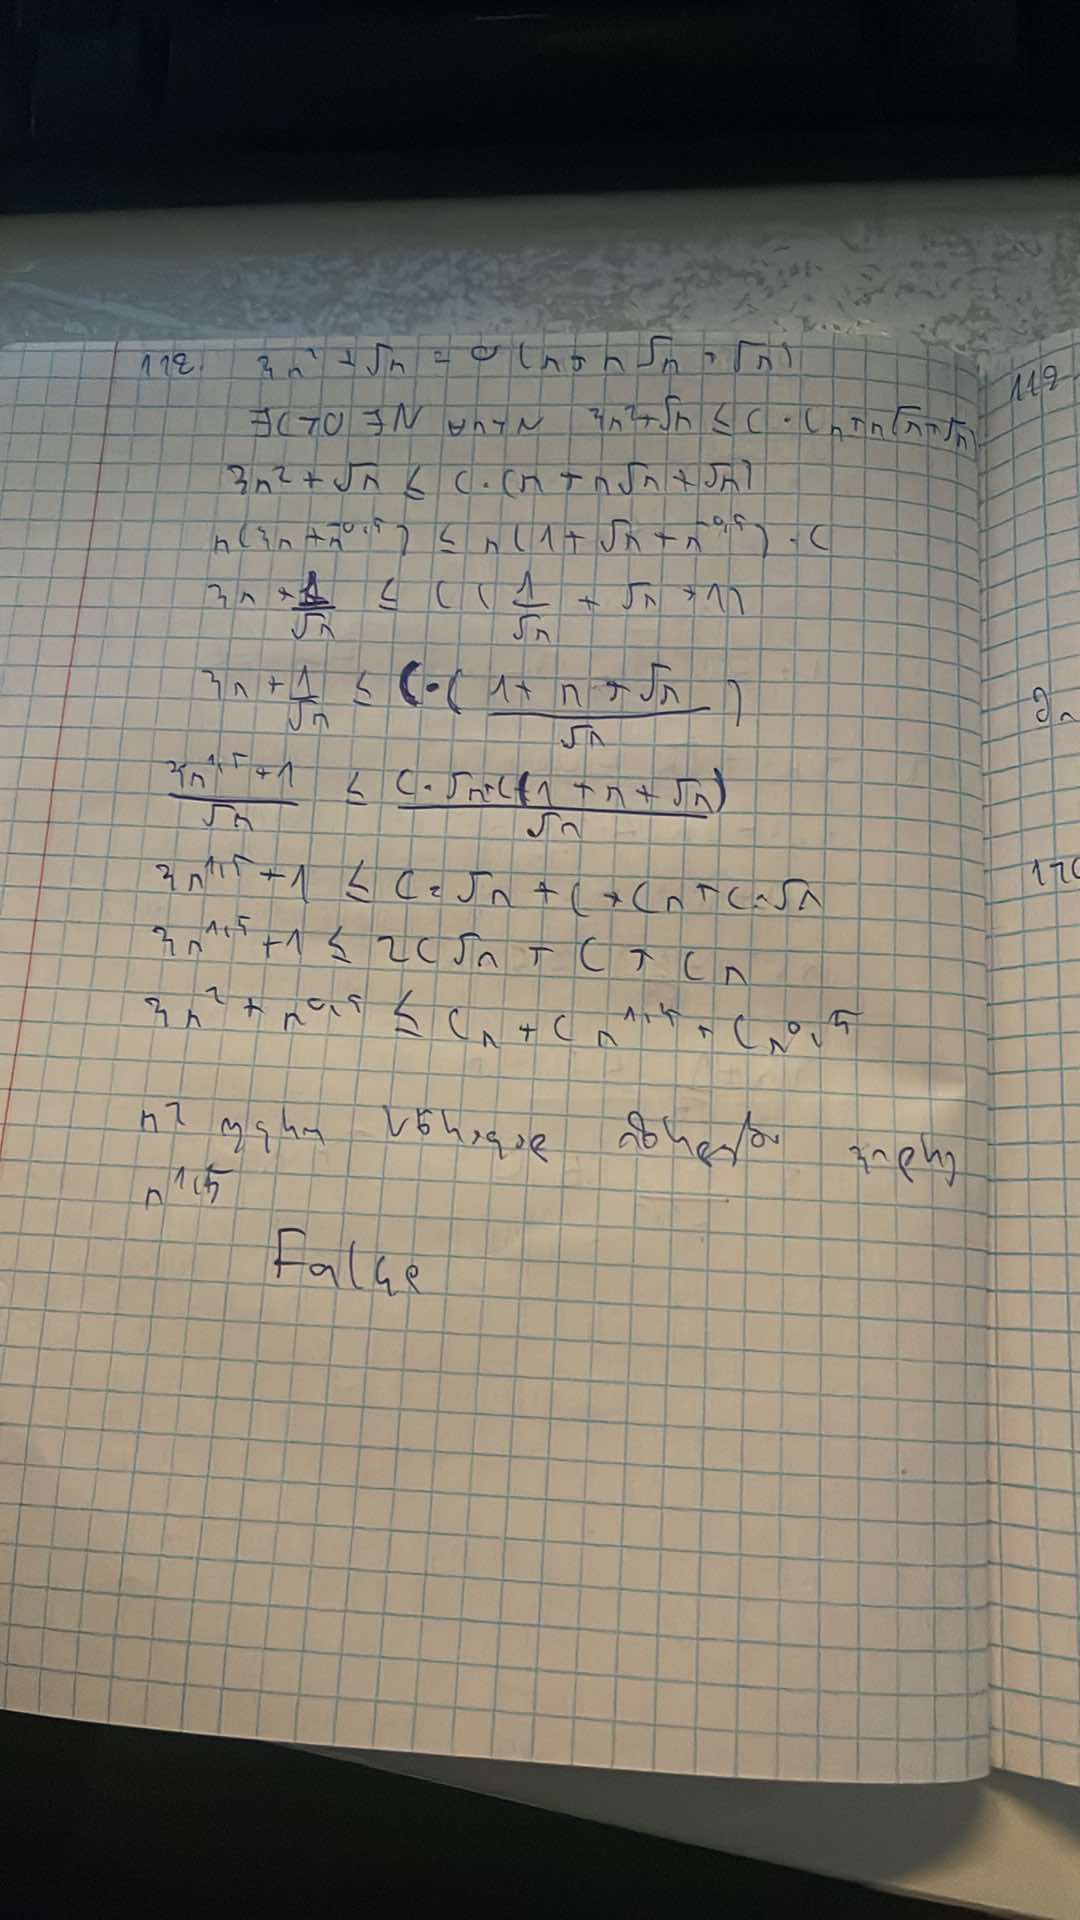 112. 3n² + √n = O(n + n√n + √n)
∃C>0 ∃N ∀n>N 3n²+√n ≤ C·(n+n√n+√n)
3n² + √n ≤ C·(n + n√n + √n)
n(3n + n⁰,⁵) ≤ n(1 + √n + n⁰,⁵)·C
3n + 1/√n ≤ C(1/√n + √n + 1)
3n + 1/√n ≤ C·((1 + n + √n)/√n)
(3n¹,⁵ + 1)/√n ≤ (C·√n+C(1 + n + √n))/√n
3n¹,⁵ + 1 ≤ C·√n + C + Cn + C·√n
3n¹,⁵ + 1 ≤ 2C√n + C + Cn
3n² + n⁰,⁵ ≤ Cn + Cn¹,⁵ + Cn⁰,⁵
n²
n¹,⁵
False
119
2n
120